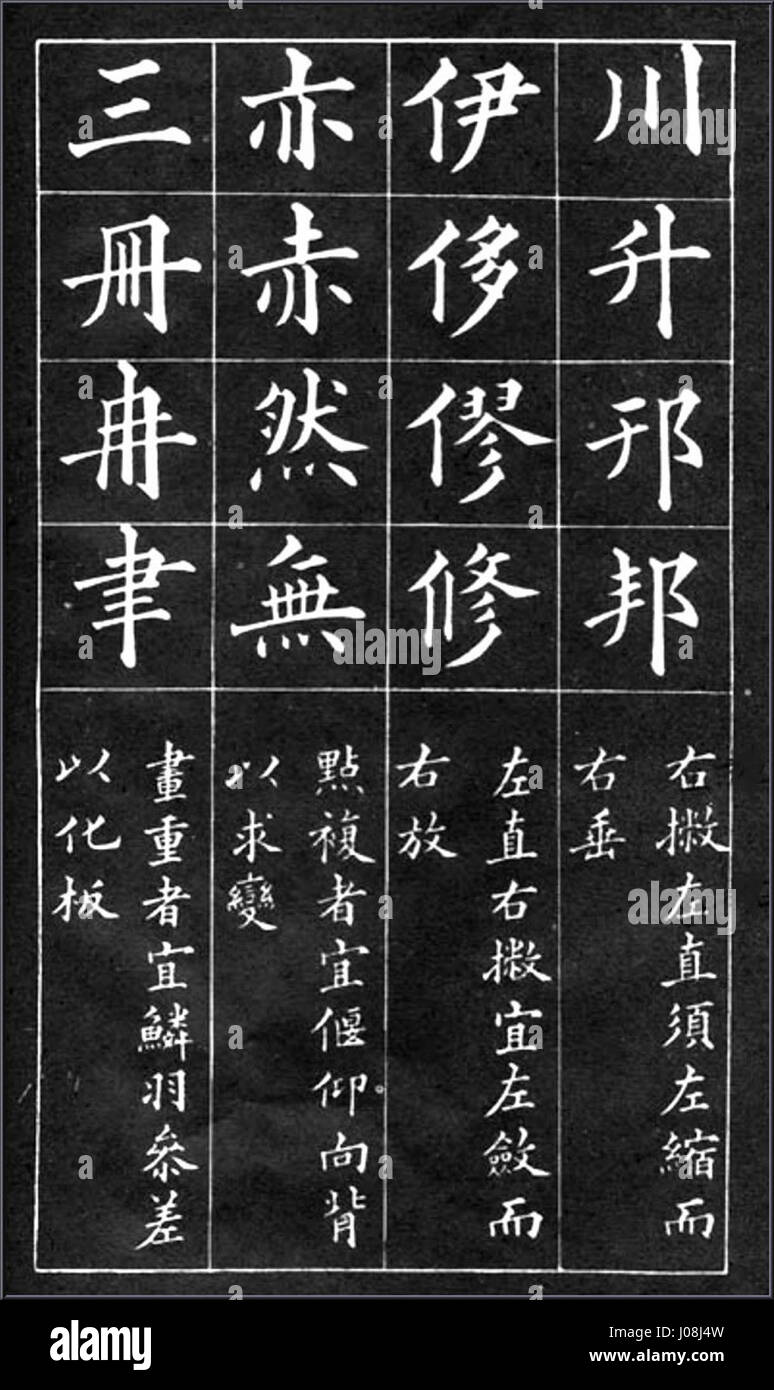 川
升
邘
邦
右撇左直須左縮而
右垂
伊
侈
僇
修
左直右撇宜左斂而
右放
亦
赤
然
無
點複者宜偃仰向背
以求變
三
冊
冉
聿
畫重者宜鱗羽參差
以化板
alamy
alamy
alamy
alamy
Image ID: J08J4W
www.alamy.com